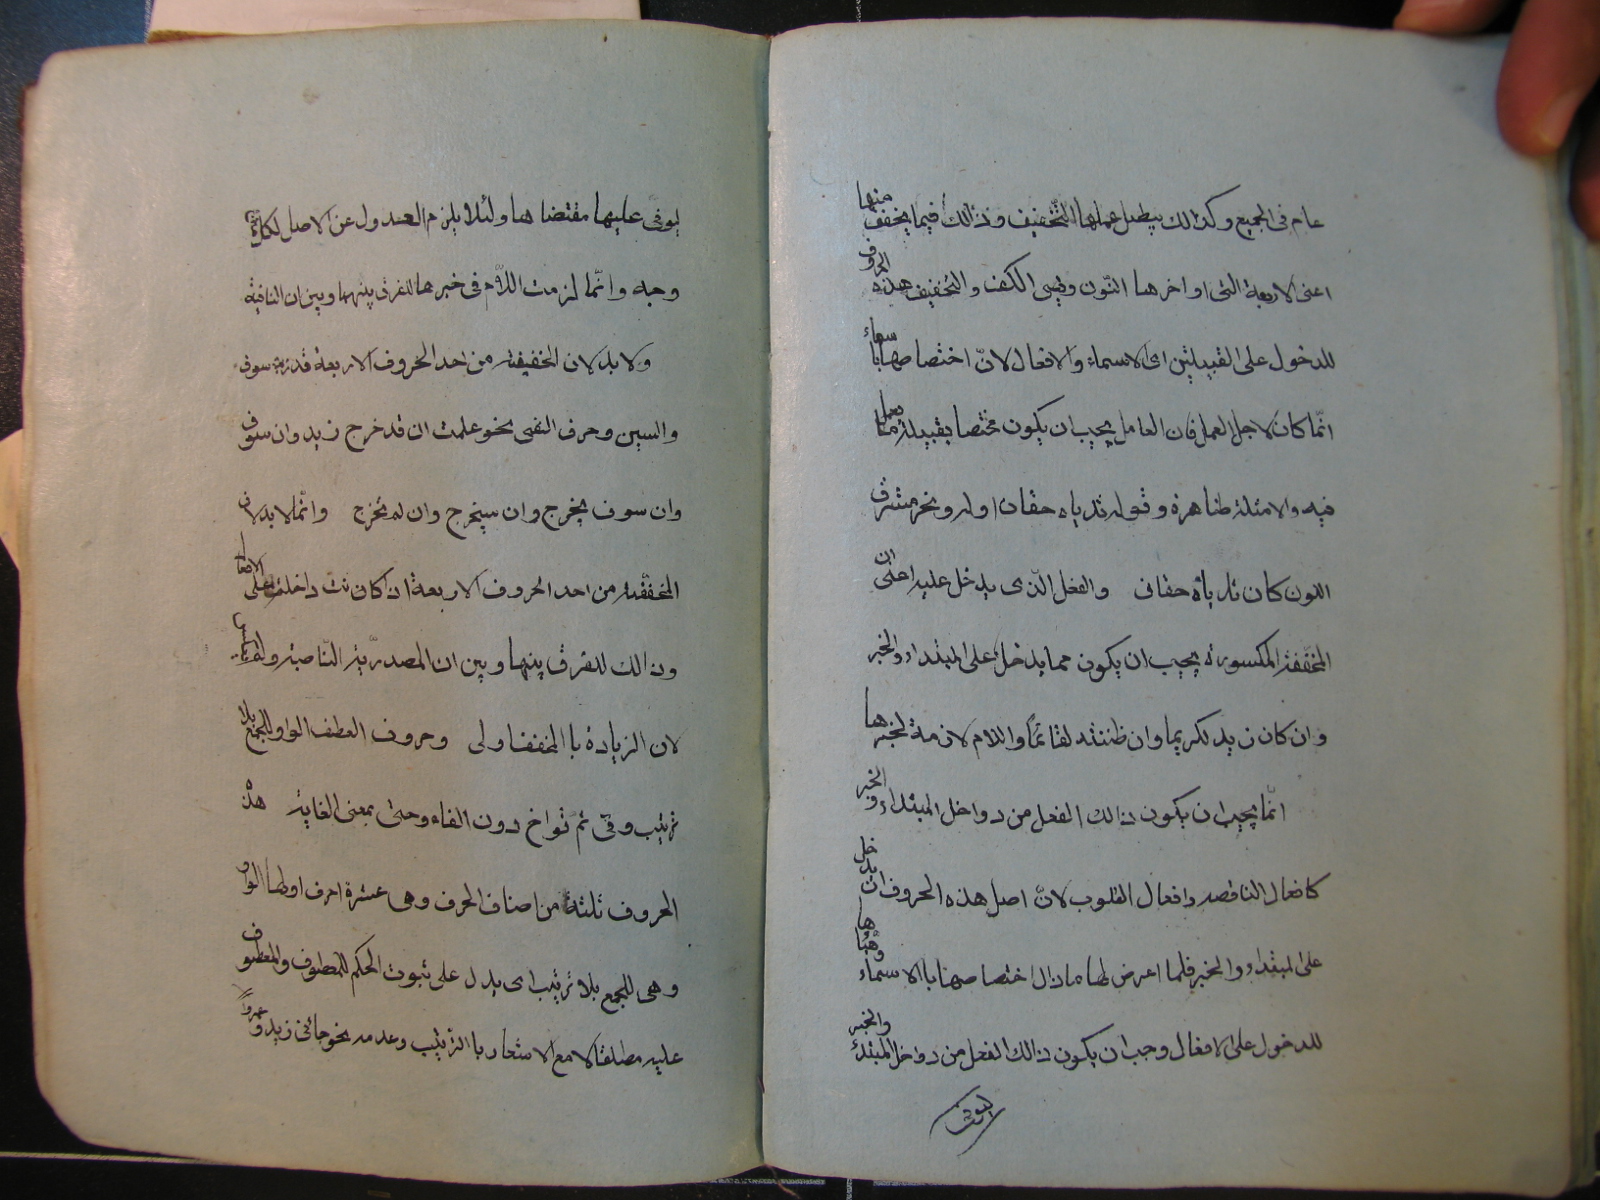 عام فى الجميع وكذالك يبطل عملها التخفيف وذالك فيما يخفف منها
اعنى الاربعة التى اواخرها النّون وهى الكف والتخفيف هذه الحروف
للدخول على القبيلتين اى الاسماء والافعال لانّ اختصاصها بالاسماء
انّما كان لاجل العمل فان العامل يجب ان يكون مختصا بقبيلة ما يعمل
فيه والامثلة ظاهرة وقوله ثدياه حقان اوله ونحر مشرق
اللون كان ثدياه حقان والفعل الّذى يدخل عليه اعنى ان
المخففة المكسورة يجب ان يكون مما يدخل على المبتداء والخبر
وان كان زيد لكريما وان ظننته لقائما واللام لازمة لخبرها
انّما يجب ان يكون ذالك الفعل من دواخل المبتداء والخبر
كافعال الناقصه وافعال القلوب لانّ اصل هذه الحروف ان يدخل
على المبتداء والخبر فلما اعرض لها ما زال اختصاصها باالاسماء
للدخول على الافعال وجب ان يكون ذالك الفعل من دواخل المبتدئ والخبر
ليوفى
ليوفى عليها مقتضاها ولئلا يلزم العدول عن الاصل لكل
وجه وانّما لزمت اللاّم فى خبرها للفرق بينهما وبين ان النافية
ولا بد لان الخفيفة من احد الحروف الاربعة قد سوف
والسين وحرف النفى نحو علمت ان قد خرج زيد وان سوف
وان سوف يخرج وان سيخرج وان لم يخرج وانّما لا بد لان
المخفّفة من احد الحروف الاربعة ان كانت داخلة على الافعال
وذالك للفرق بينها وبين ان المصدريّة النّاصبة
لان الزيادة باالمخفف اولى وحروف العطف الواو للجمع بلا
ترتيب وفى ثم تواخ دون الفاء وحتى بمعنى الغاية هذه
الحروف ثلثة من اصناف الحرف وهى عشرة احرف اولها الواو
وهى للجمع بلا ترتيب اى يدل على ثبوت الحكم للمطوف والمطوف
عليه مطلقا لا مع الاشعار باالترتيب وعدمه نحو جائنى زيد وعمروٌ